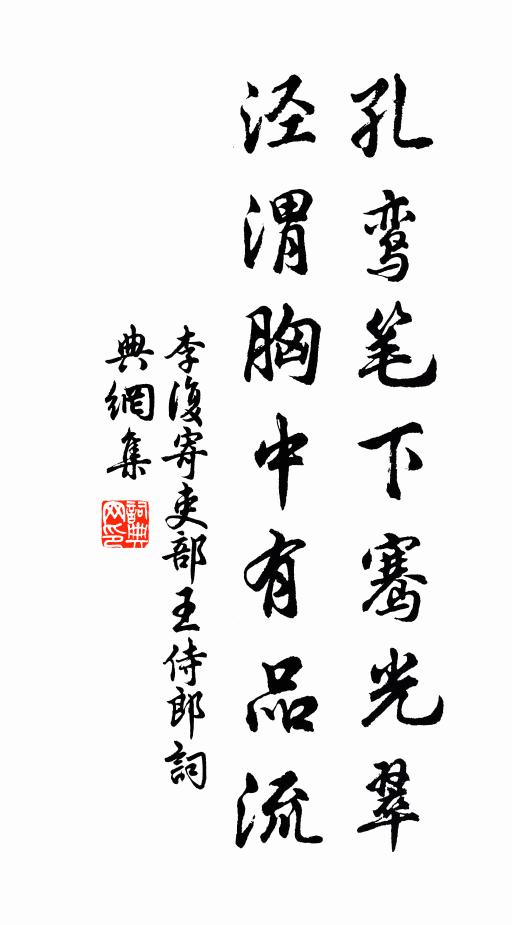 孔鸾笔下骞光翠
泾渭胸中有品流
李復寄吏部王侍郎詞
典網集
詞典
网印